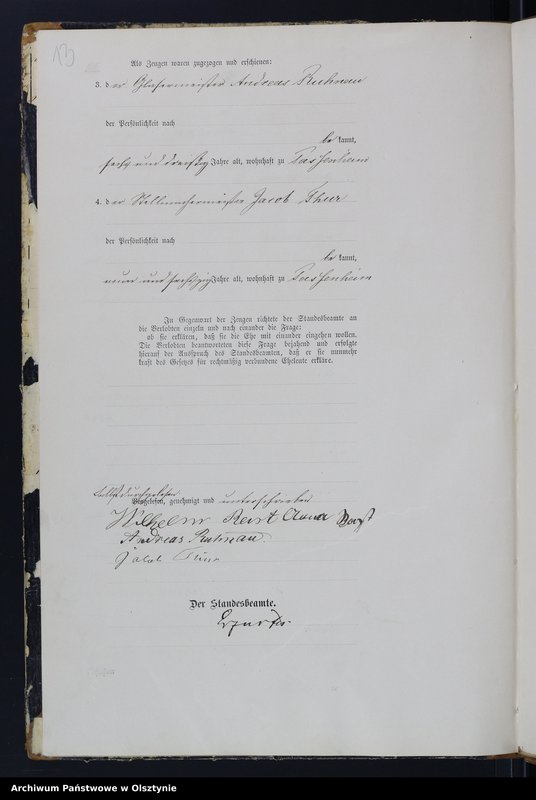 13
Als Zeugen waren zugezogen und erschienen:
3. der Glasermeister Andreas Ruhnau
der Persönlichkeit nach
be kannt,
sechs und dreißig Jahre alt, wohnhaft zu
4. der Stellmachermeister Jacob Thur
der Persönlichkeit nach
be kannt,
neun und Jahre alt, wohnhaft zu
In Gegenwart der Zeugen richtete der Standesbeamte an
die Verlobten einzeln und nach einander die Frage:
ob sie erklären, daß sie die Ehe mit einander eingehen wollen.
Die Verlobten beantworteten diese Frage bejahend und erfolgte
hierauf der Ausspruch des Standesbeamten, daß er sie nunmehr
kraft des Gesetzes für rechtmäßig verbundene Eheleute erkläre.
selbst durchgelesen
Vorgelesen, genehmigt und unterschrieben
Wilhelm Anna
Andreas Ruhnau.
Jacob Thur
Der Standesbeamte.
Archiwum Państwowe w Olsztynie